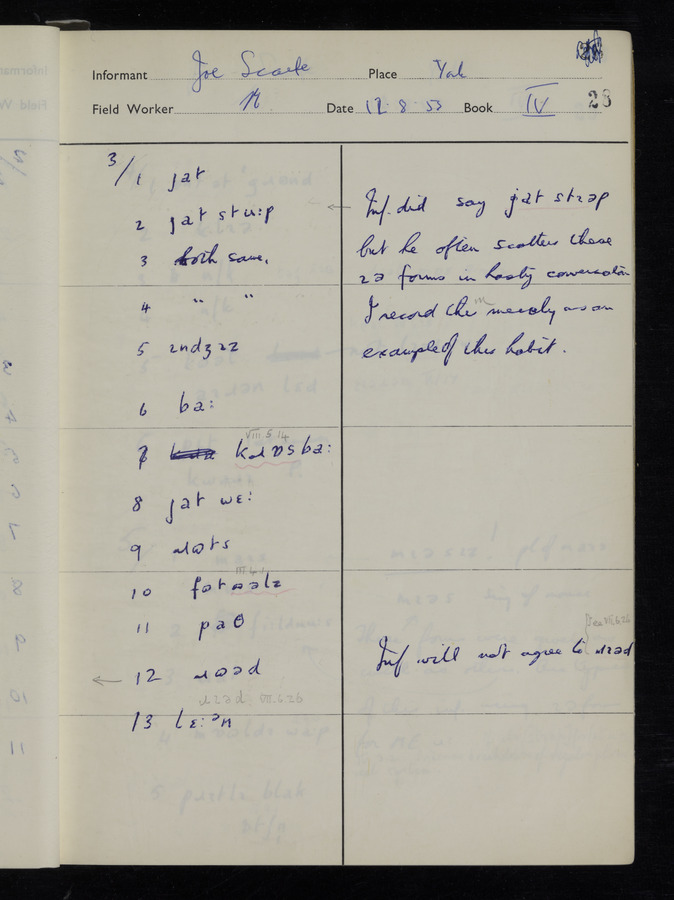 Informant Joe Scaife Place York
Field Worker N Date 12.8.53 Book IV 28
3/1 jat
2 jat stu:p
3 both same.
4 " "
5 ɪndʒɪz
6 ba:
VIII.5.14
7 kɹɒsba:
8 jat wɛ:
9 ɹɷts
III.4.1
10
11 paθ
12 ɹɷəd
ɹɪəd VII.6.26
13 lɛ:ən
← Inf. did say jat stɪəp
but he often scatters these
ɪə forms in hasty conversation
I record this merely as an
example of this habit.
See VII.6.26
Inf will not agree to ɹɪəd